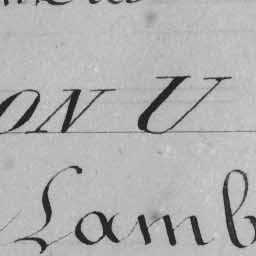 ON U
Lamb